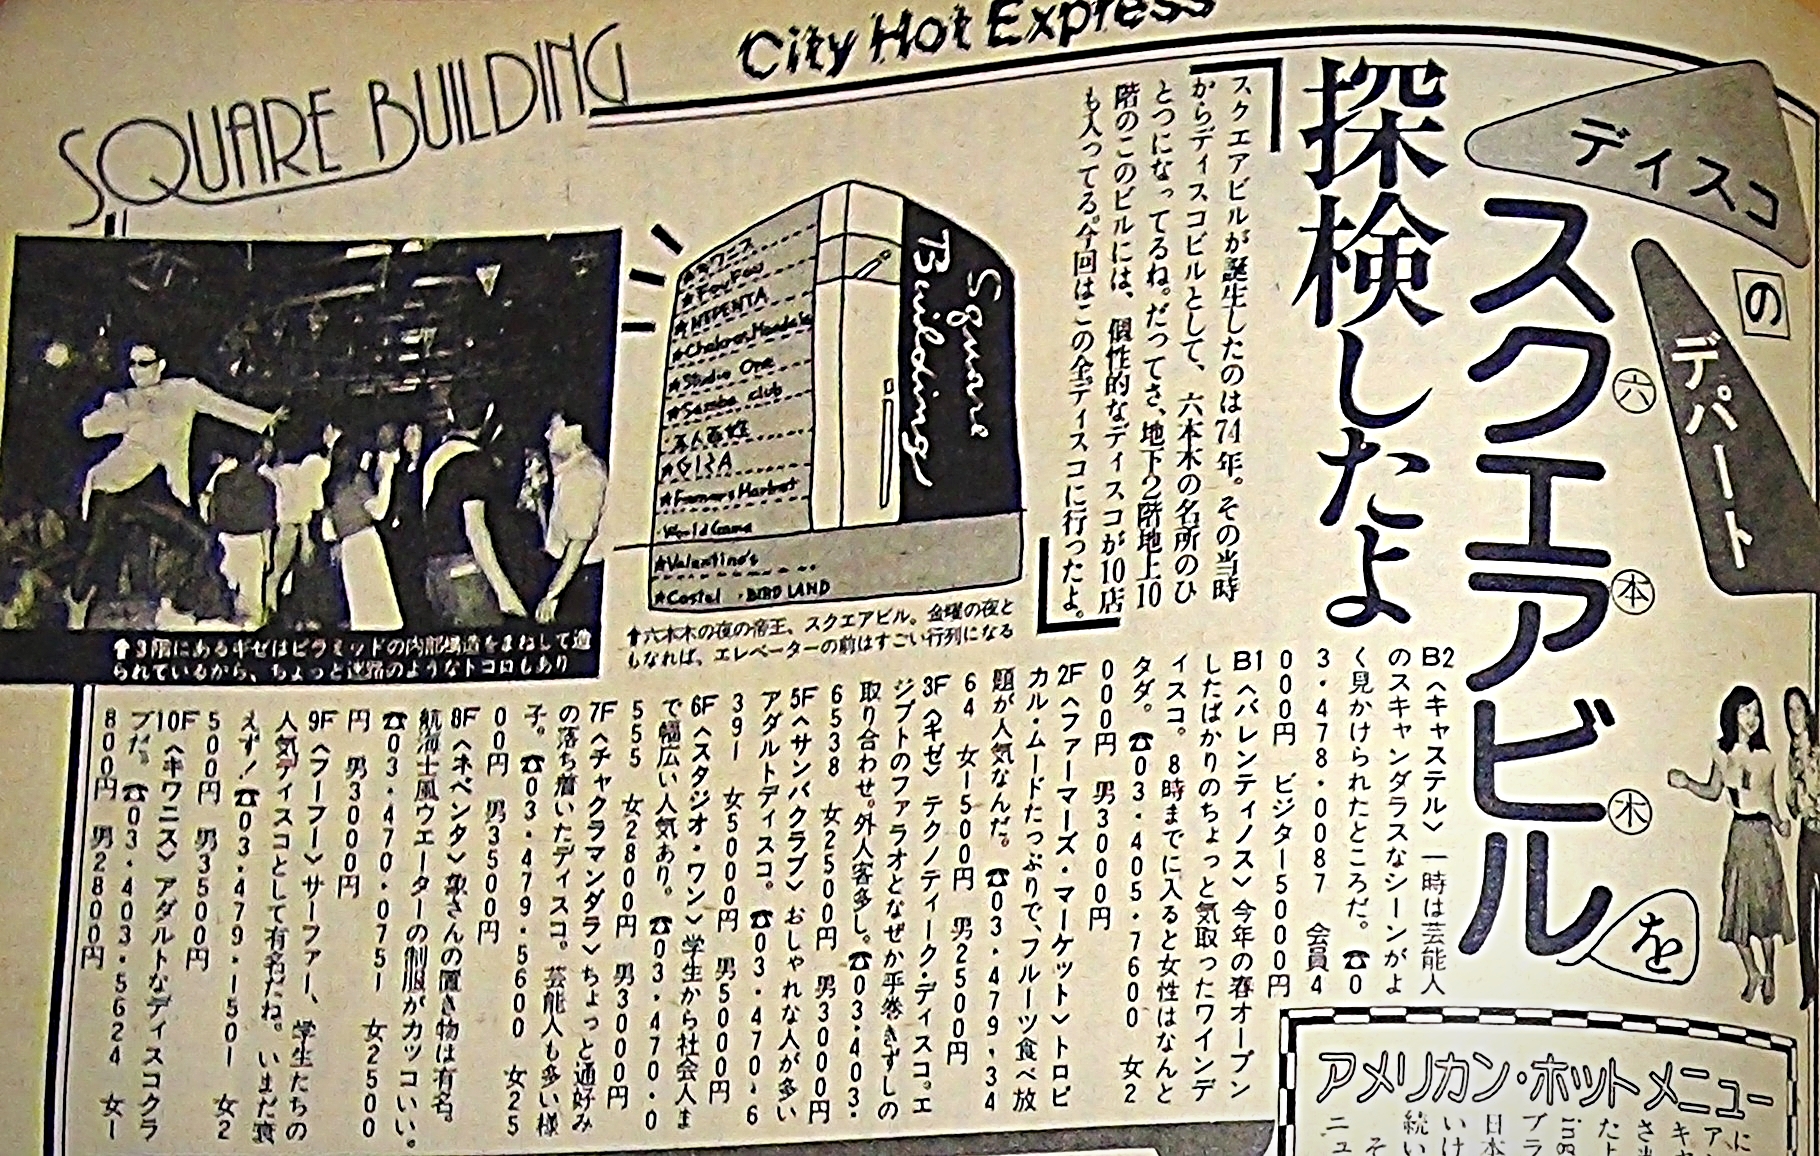 City Hot Express
SQUARE BUILDING
ディスコ
の
デパート
六本木
スクエアビルを
探検したよ
スクエアビルが誕生したのは74年。その当時
からディスコビルとして、六本木の名所のひ
とつになってるね。だってさ、地下2階地上10
階のこのビルには、個性的なディスコが10店
も入ってる。今回はこの全ディスコに行ったよ。
Square
Building
★キワニス
★Fou Fou
★NEPENTA
★Chakra Mandala
★Studio One
★Samba club
★GIZA
★Farmers Market
・World Game
★Valentino's
★Castel ・BIRD LAND
⬆六本木の夜の帝王、スクエアビル。金曜の夜と
もなれば、エレベーターの前はすごい行列になる
⬆3階にあるギゼはピラミッドの内部構造をまねして造
られているから、ちょっと迷路のようなトコロもあり
B2〈キャステル〉一時は芸能人
のスキャンダラスなシーンがよ
く見かけられたところだ。☎0
3・478・0087 会員4
000円 ビジター5000円
B1〈バレンティノス〉今年の春オープン
したばかりのちょっと気取ったワインデ
ィスコ。8時までに入ると女性はなんと
タダ。☎03・405・7600 女2
000円 男3000円
2F〈ファーマーズ・マーケット〉トロピ
カル・ムードたっぷりで、フルーツ食べ放
題が人気なんだ。☎03・479・34
64 女1500円 男2500円
3F〈ギゼ〉テクノティーク・ディスコ。エ
ジプトのファラオとなぜか手巻きずしの
取り合わせ。外人客多し。☎03・403・
6538 女2500円 男3000円
5F〈サンバクラブ〉おしゃれな人が多い
アダルトディスコ。☎03・470・6
391 女5000円 男5000円
6F〈スタジオ・ワン〉学生から社会人ま
で幅広い人気あり。☎03・470・0
555 女2800円 男3000円
7F〈チャクラマンダラ〉ちょっと通好み
の落ち着いたディスコ。芸能人も多い様
子。☎03・479・5600 女25
00円 男3500円
8F〈ネペンタ〉象さんの置き物は有名。
航海士風ウエーターの制服がカッコいい。
☎03・470・0751 女2500
円 男3000円
9F〈フーフー〉サーファー、学生たちの
人気ディスコとして有名だね。いまだ衰
えず!☎03・479・1501 女2
500円 男3500円
10F〈キワニス〉アダルトなディスコクラ
ブだ。☎03・403・5624 女1
800円 男2800円
アメリカン・ホットメニュー